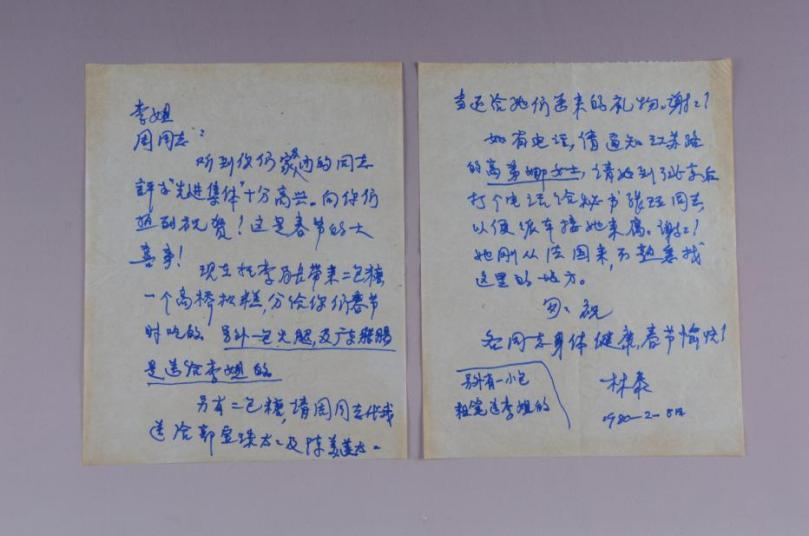 李姐
周同志：
听到你们家内的同志
评了“先进集体”十分高兴。向你们
热烈祝贺！这是春节的大
喜事！
现立托李 带来二包糖
一个高桥松糕，分给你们春节
时吃的。另外一包火腿，及广东腊肠
是送给李姐的
另有二包糖，请周同志代我
送给郭 珠太太及陈美莲太太。
当还给她们送来的礼物。谢谢！
她有电话，请通知江苏路
的高 娜女士，请她到 后
打个电话给秘书张 同志，
以便派车接她来 。谢谢！
她刚从法国来，不熟悉找
这里的地方。
匆匆祝
各同志身体健康，春节愉快！
林
1980-2-
另外有一小包
送李姐的